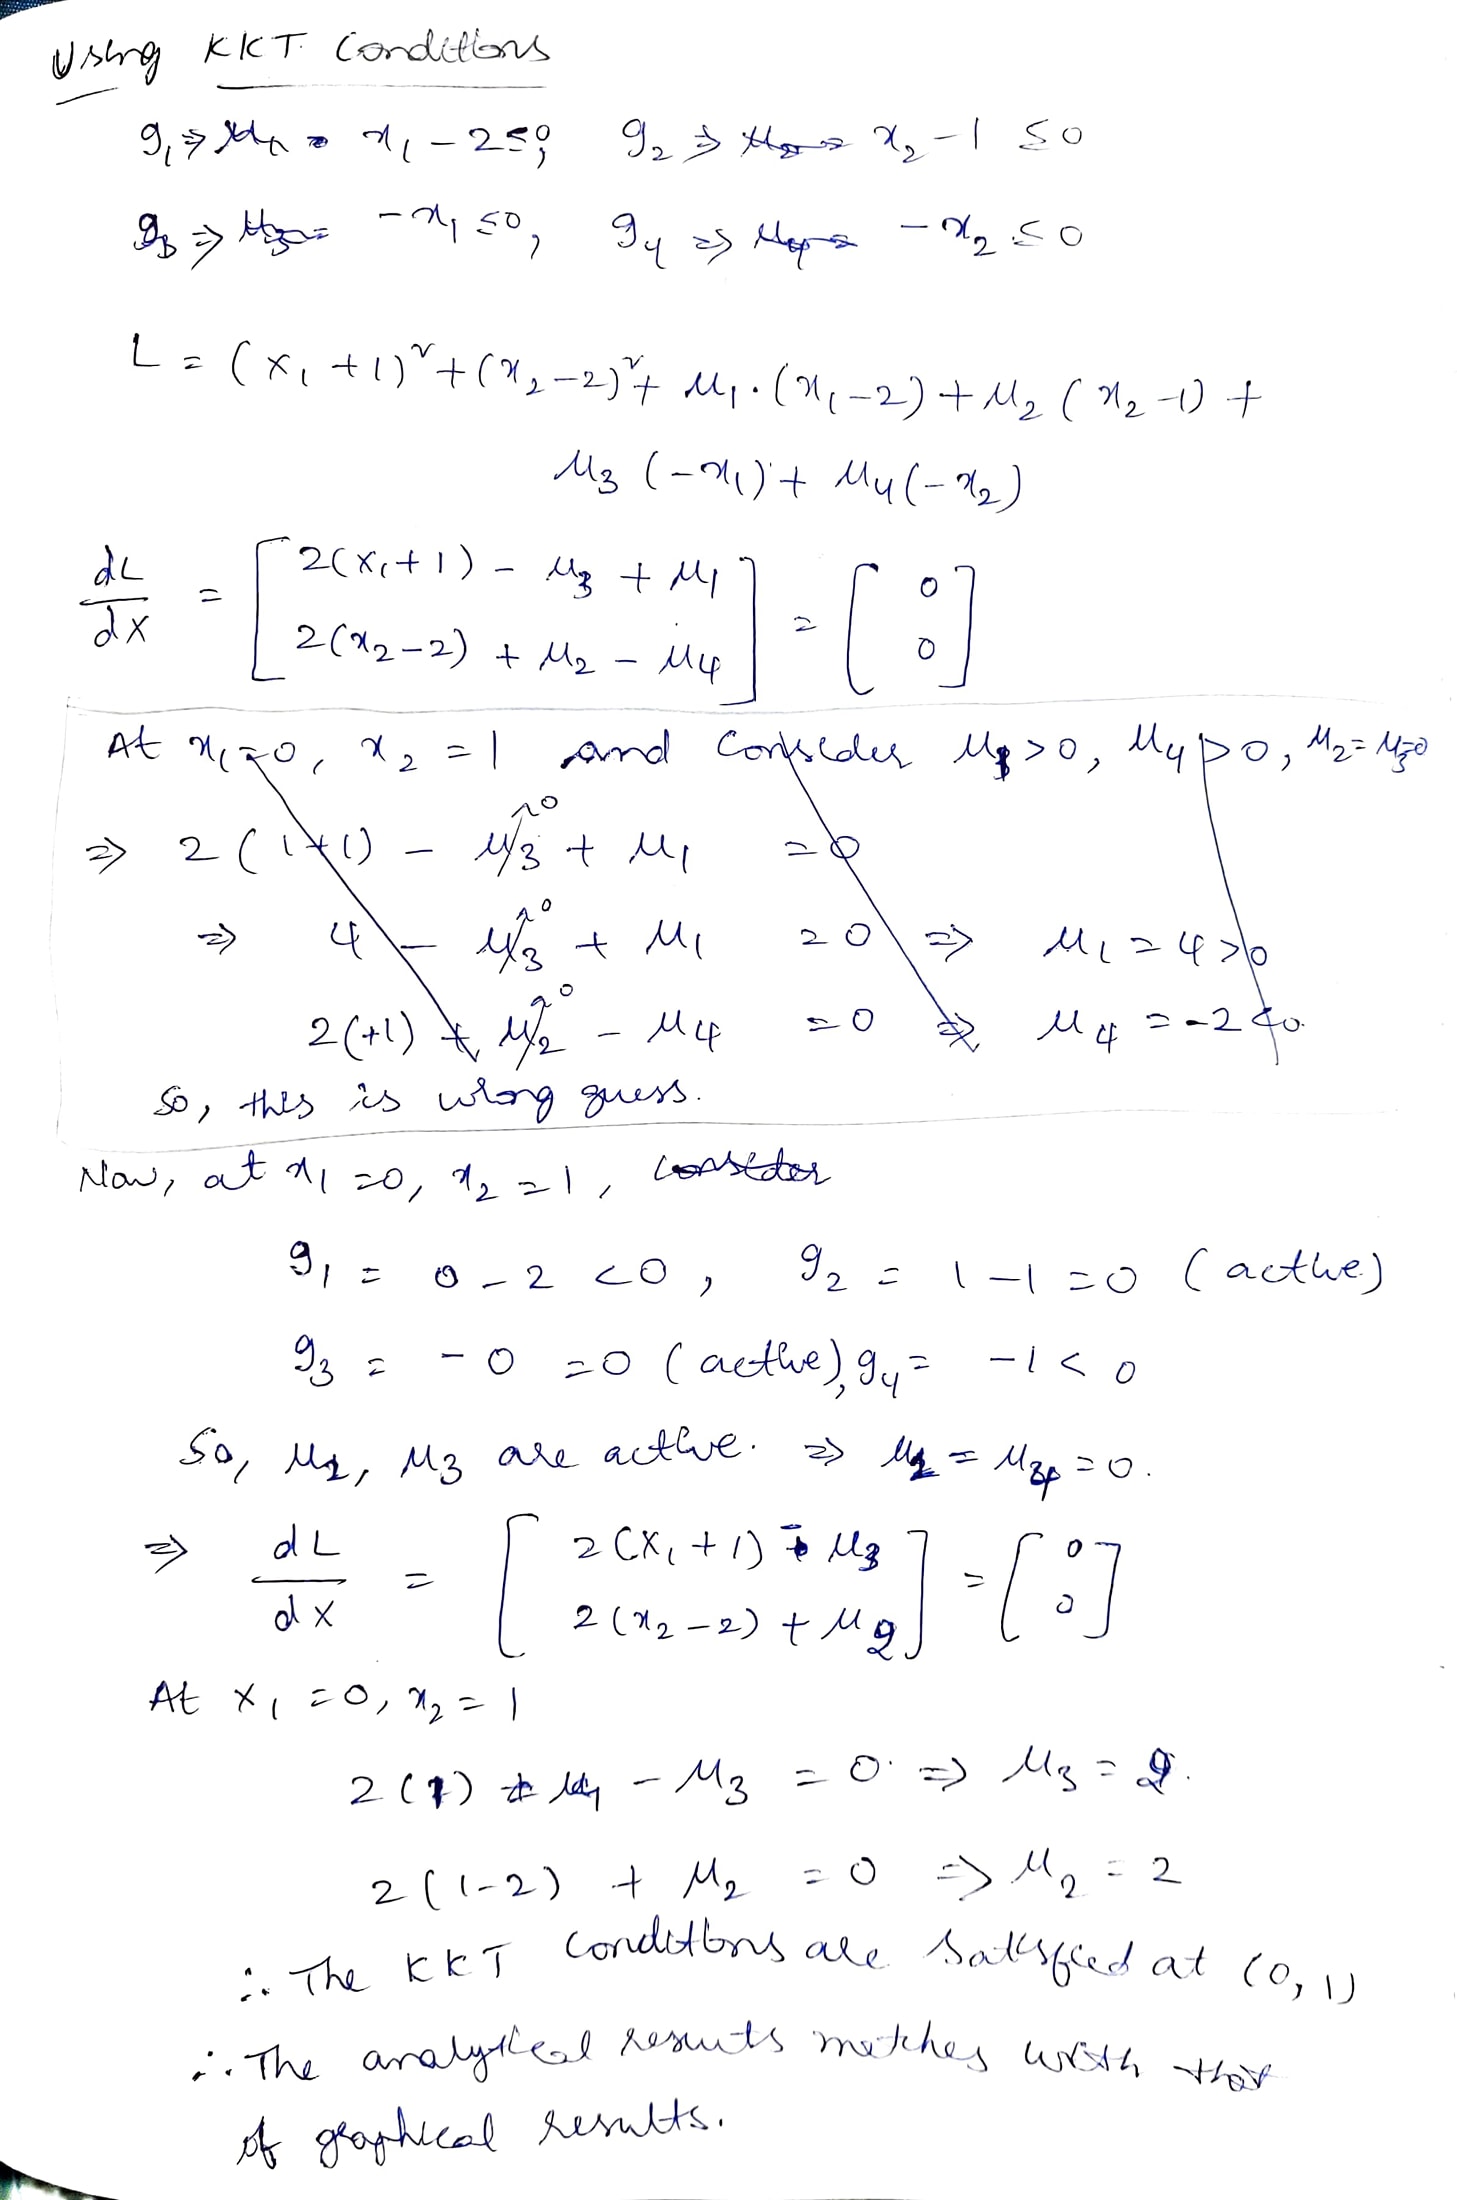 Using KKT Conditions
g₁ ⇒ x₁ - 2 ≤ 0; g₂ ⇒ x₂ - 1 ≤ 0
g₃ ⇒ -x₁ ≤ 0, g₄ ⇒ -x₂ ≤ 0
L = (x₁ + 1)² + (x₂ - 2)² + μ₁ . (x₁ - 2) + μ₂ (x₂ - 1) +
μ₃ (-x₁) + μ₄ (-x₂)
dL/dx = [ 2(x₁ + 1) - μ₃ + μ₁ ; 2(x₂ - 2) + μ₂ - μ₄ ] = [ 0 ; 0 ]
At x₁ = 0, x₂ = 1 and consider μ₁ > 0, μ₄ > 0, μ₂ = μ₃ = 0
⇒ 2(1+1) - μ₃↗0 + μ₁ = 0
⇒ 4 - μ₃↗0 + μ₁ = 0 ⇒ μ₁ = 4 > 0
2(+1) + μ₂↗0 - μ₄ = 0 ⇒ μ₄ = -2 < 0.
So, this is wrong guess.
Now, at x₁ = 0, x₂ = 1, consider
g₁ = 0 - 2 < 0, g₂ = 1 - 1 = 0 (active)
g₃ = - 0 = 0 (active), g₄ = -1 < 0
So, μ₂, μ₃ are active. ⇒ = = 0.
⇒ dL/dx = [ 2(x₁ + 1) - μ₃ ; 2(x₂ - 2) + μ₂ ] = [ 0 ; 0 ]
At x₁ = 0, x₂ = 1
2(1) - μ₃ = 0 ⇒ μ₃ = 2.
2(1-2) + μ₂ = 0 ⇒ μ₂ = 2
∴ The KKT conditions are satisfied at (0, 1)
∴ The analytical results matches with that
of graphical results.